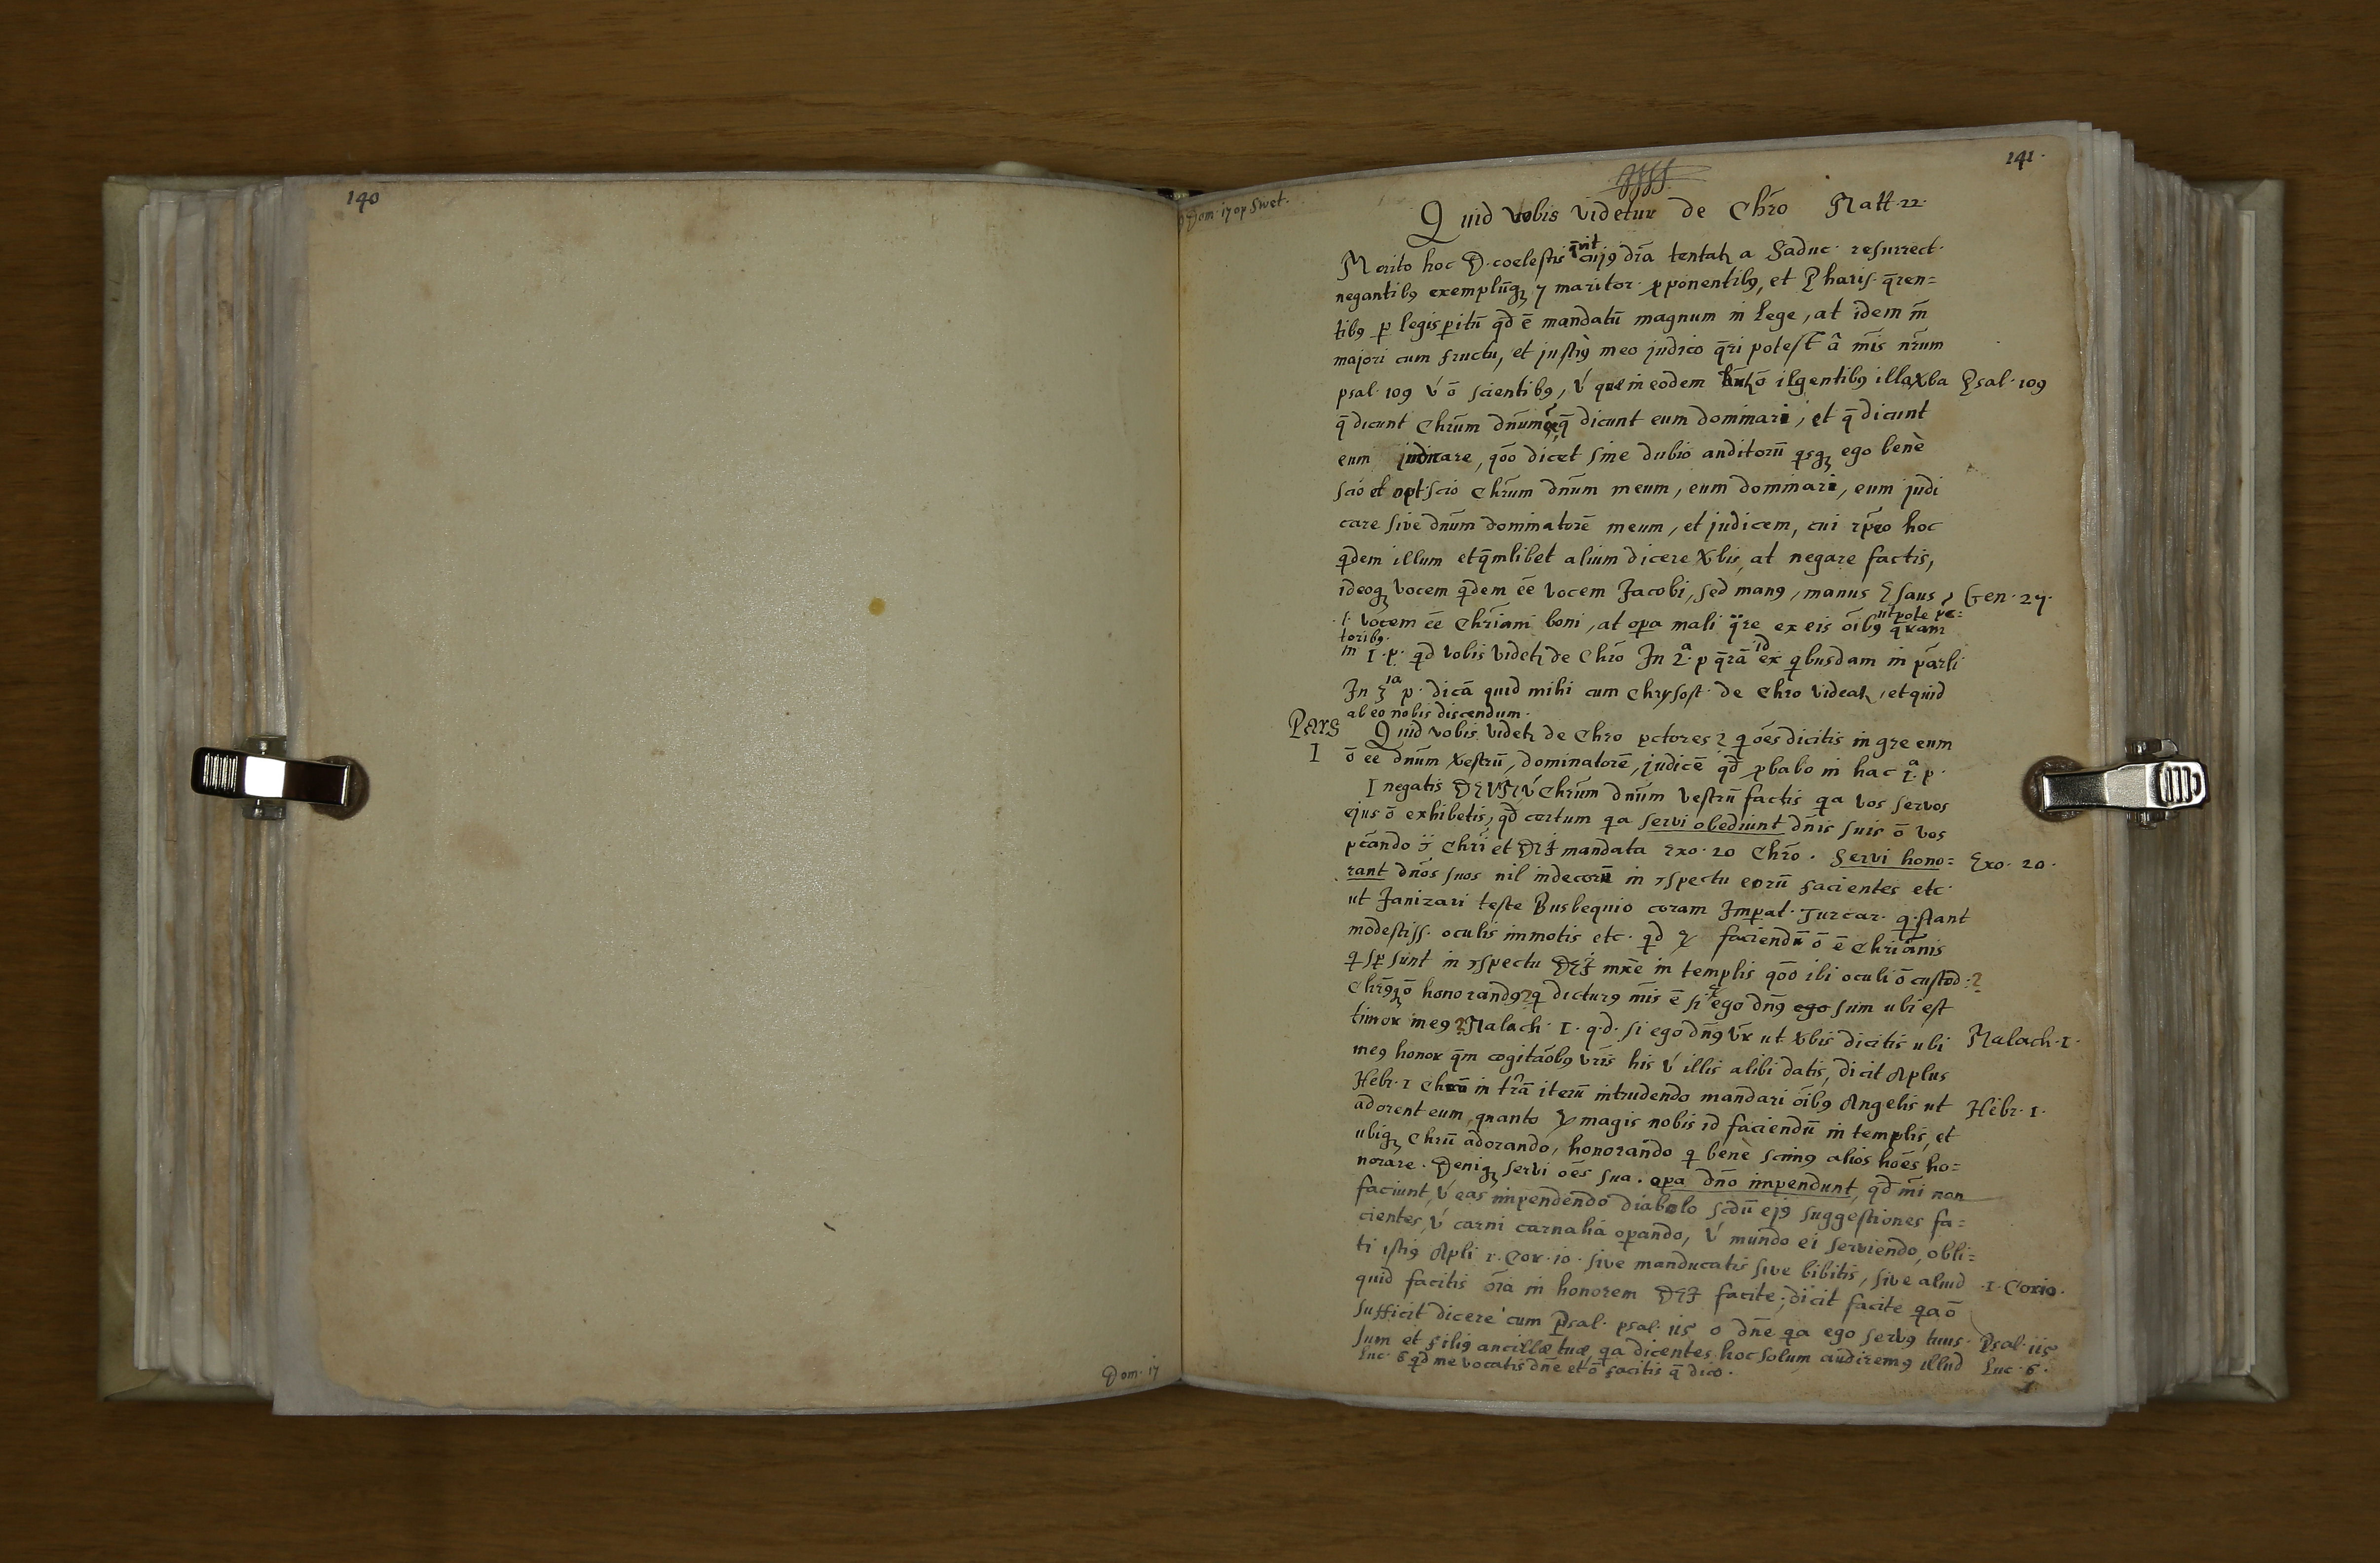 140
Dom. 17
Dom. 17 op Swet.
141.
Quid vobis videtur de Chro Matt. 22.
Merito hoc D. coelestis cuj9 dra a Saduc. resurrect.
negantib9 exemplūq3 7 maritor. pponentib9, et Pharis. q̄ren=
tib9 p legisperitū qd ē mandatū magnum in lege, at idem m̄
majori cum fructu, et justi9 meo judico q̄ri potest ā mis nr̄um
psal. 109 v́ ō scientib9, v́ que in eodem ō ilgentib9 illa xba Psal. 109
q̄ dicunt Chrūm dn̄um q̄ dicunt eum dominari, et q̄ dicunt
eum judicare, qōo dicet sine dubio auditorū qsq3 ego benè
scio et opt. scio Chrūm dn̄um meum, eum dominari, eum judi
care sive dn̄um dominatorē meum, et judicem, cui rp̄eo hoc
qdem illum et q̄mlibet alium dicere xbis, at negare factis,
ideoq3 vocem qdem ēe vocem Jacobi, sed man9, manus Esaus, Gen. 27.
.i. vocem ēe Chriāni boni, at opa mali q̄re ex eis ōib9 utpote pc= q̄ram
toribus
in I. p. qd vobis videt de Chrō In 2.a p q̄rā id ex qbusdam in pārli
In 3ia p. dicā quid mihi cum Chrysost. de Chro videat, et quid
ab eo nobis discendum.
Pars I
Quid vobis videt de Chro pctores? q ōes dicitis in gre eum
ō ēe dn̄um xestrū, dominatorē, judicē qd pbabo in hac 1.a p.
I negatis DEUM v́ Chrūm dn̄um vestrū factis qa vos servos
ejus ō exhibetis, qd certum qa servi obediunt dn̄is suis ō vos
pcando Chri et DEI mandata Exo. 20 Chrō. Servi hono= Exo. 20.
rant dn̄os suos nil indecorū in rspectu eorū facientes etc.
ut Janizari teste Busbequio coram Impat. Turcar. q. stant
modestiss. oculis immotis etc. qd faciendū ō ē Chriānis
q sp sunt in rspectu DEI mxē in templis qōo ibi oculi ō custod:?
Chr9 ō honorand9? q dictur9 mis ē si ego dn̄9 ego sum ubi est
timor me9? Malach. I. q. d. si ego dn̄9 vr̄ ut xbis dicitis ubi Malach. I.
me9 honor q̄m cogitāōb9 vr̄is his v́ illis alibi datis, dicit Aplus
Hebr. I in trā iterū intrudendo mandari ōib9 Angelis ut Hebr. I.
adorent eum, quanto magis nobis id faciendū in templis, et
ubiq3 Chrū adorando, honorando q benè scim9 alios hōes ho=
norare. Deniq3 servi ōes sua opa dn̄o impendunt, qd mi non
faciunt, v́ eas impendendo diabolo scdū ej9 suggestiones fa=
cientes, v́ carni carnalia opando, v́ mundo ei serviendo, obli=
ti isti9 Apli 1. Cor. 10. sive manducatis sive bibitis, sive aliud .I. Cor 10.
quid facitis ōia in honorem DEI facite; dicit facite qa ō
sufficit dicere cum Psal. psal. 115 o dn̄e qa ego serv9 tuus. Psal. 115
sum et fili9 ancillæ tuæ, qa dicentes hoc solum audirem9 illud Luc. 6.
Luc. 6 qd me vocatis dn̄e et ō facitis q̄ dico.